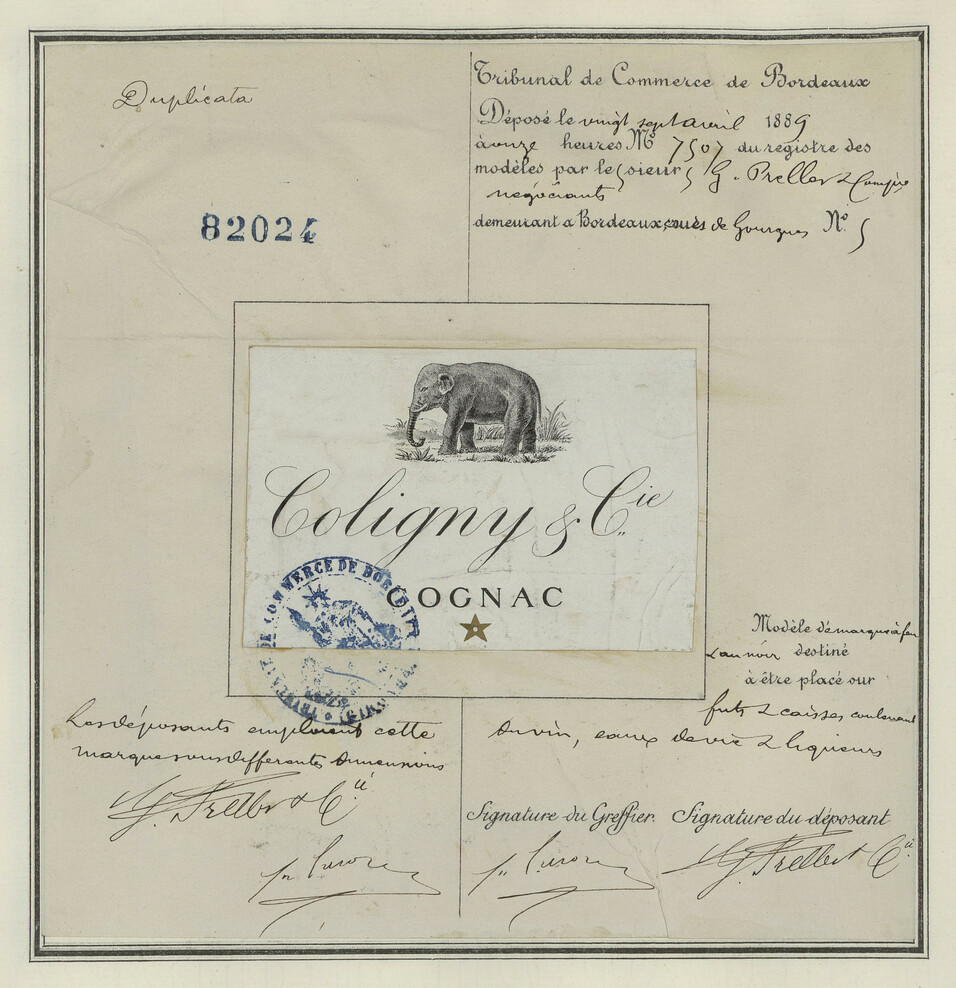 Duplicata
82024
Tribunal de Commerce de Bordeaux
Déposé le vingt sept avril 1889
à onze heures Nº 7507 du registre des
modèles par le sieur G. Preller & Compie
négociants
demeurant à Bordeaux, cours de Gourgues Nº 5
Coligny & Cie
COGNAC
TRIBUNAL DE COMMERCE DE BORDEAUX
Modèle de marque à feu
& au noir destiné
à être placé sur
futs & caisses contenant
du vin, eaux de vie & liqueurs
Les déposants emploient cette
marque sous differentes dimensions
G. Preller & Cie
Signature du Greffier. Signature du déposant
G. Preller & Cie